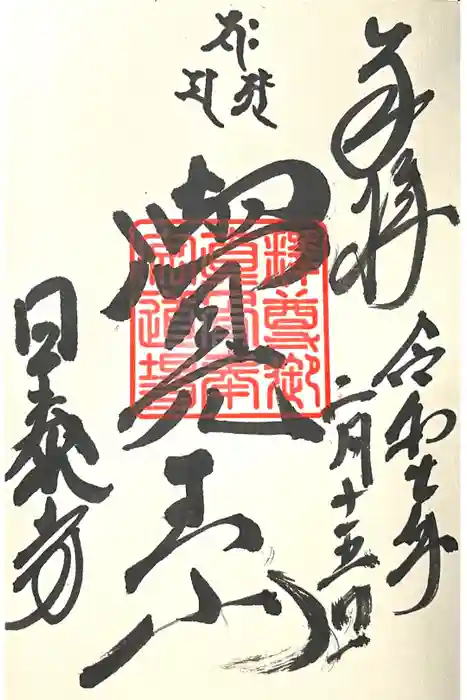 奉拝
令和七年
二月十五日
覺王山
釋尊御
道場
日泰寺